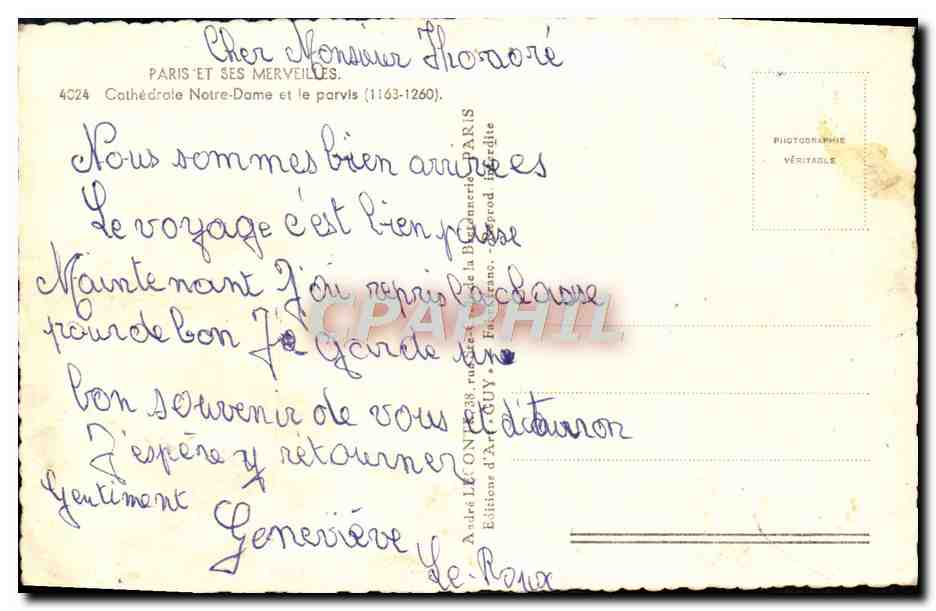 Cher Monsieur Thoraré
PARIS ET SES MERVEILLES.
4024 Cathédrale Notre-Dame et le parvis (1163-1260).
Nous sommes bien arrivées
Le voyage c'est bien passé
Maintenant J'ai repris la classe
pour de bon Je garde un
bon souvenir de vous et
J'espère y retourner
Gentiment
Geneviève
Le Roux
André LECONTE, 38, rue Ste-Croix de la Bretonnerie, PARIS
Editions d'Art "GUY" - Fab. Franc. - Reprod. interdite
PHOTOGRAPHIE
VÉRITABLE
CPAPHIL